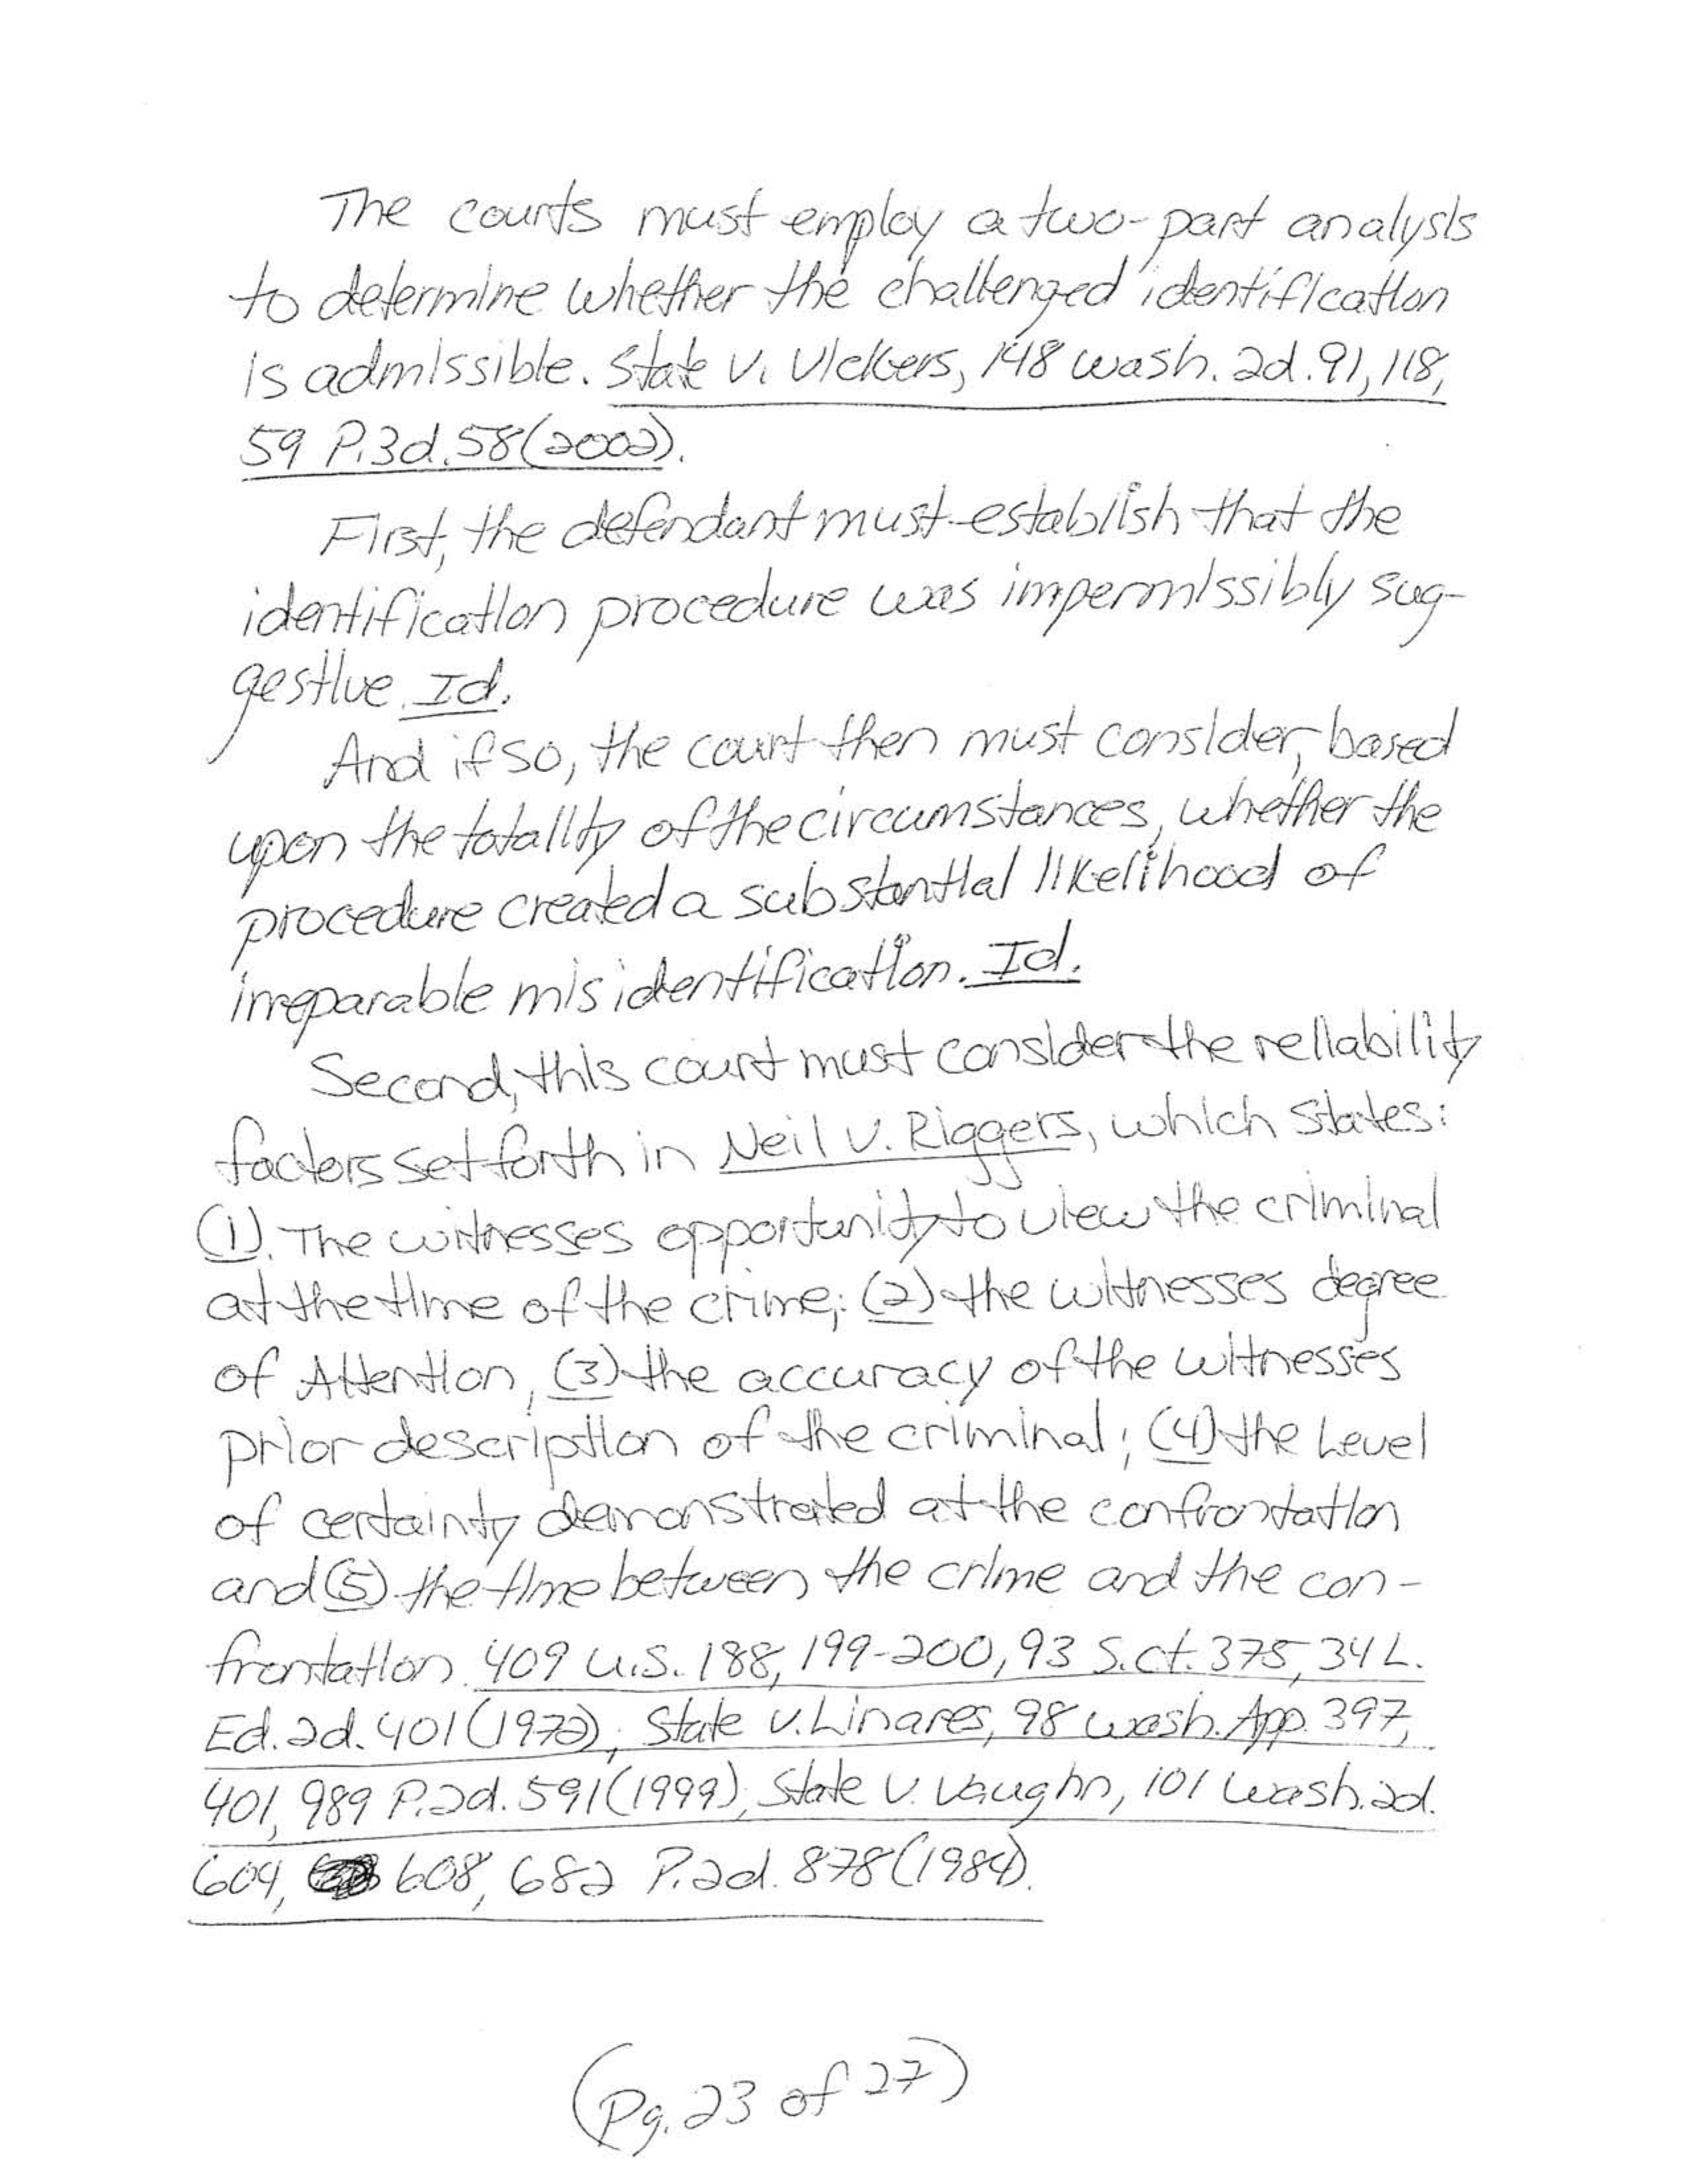 The courts must employ a two-part analysis
to determine whether the challenged identification
is admissible. State v. Vickers, 148 wash. 2d. 91, 118,
59 P.3d. 58 (2002).
First, the defendant must establish that the
identification procedure was impermissibly sug-
gestive. Id.
And if so, the court then must consider, based
upon the totality of the circumstances, whether the
procedure created a substantial likelihood of
irreparable misidentification. Id.
Second, this court must consider the reliability
factors set forth in Neil v. Riggers, which states:
(1). The witnesses opportunity to view the criminal
at the time of the crime; (2) the witnesses degree
of Attention, (3) the accuracy of the witnesses
prior description of the criminal; (4) the Level
of certainty demonstrated at the confrontation
and (5) the time between the crime and the con-
frontation. 409 U.S. 188, 199-200, 93 S.ct. 375, 34 L.
Ed. 2d. 401 (1972), State v. Linares, 98 wash. App. 397,
401, 989 P.2d. 591 (1999), State v. Vaughn, 101 wash. 2d.
604, 608, 682 P.2d. 878 (1984).
(Pg. 23 of 27)